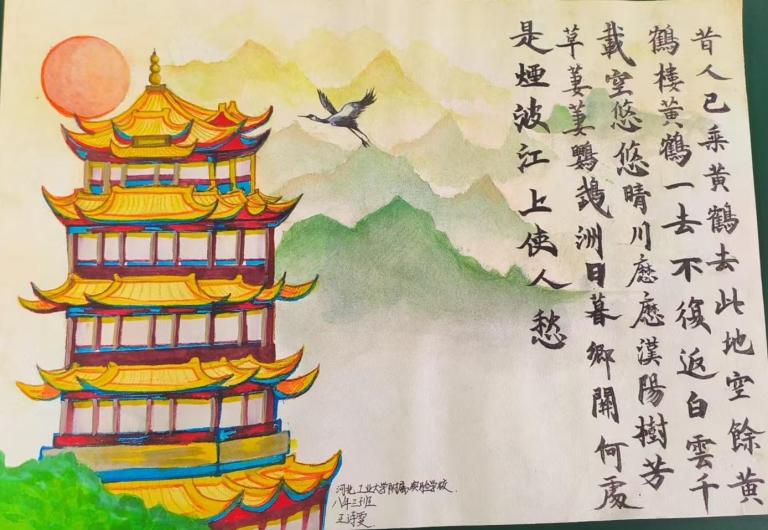 昔人已乘黄鶴去此地空餘黄
鶴楼黄鶴一去不復返白雲千
載空悠悠晴川歷歷漢陽樹芳
草萋萋鸚鵡洲日暮鄉關何處
是煙波江上使人愁
河北工业大学附属实验学校
八年三班
王诗雯